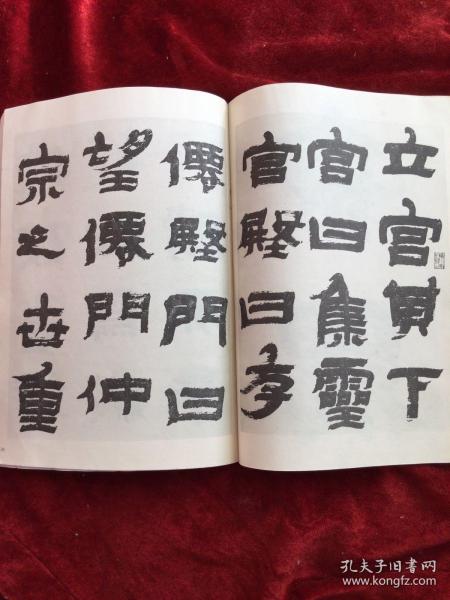 立宮其下
宮曰集靈
宮壂曰存
僊壂門曰
望僊門仲
宗之世重
孔夫子旧书网
www.kongfz.com